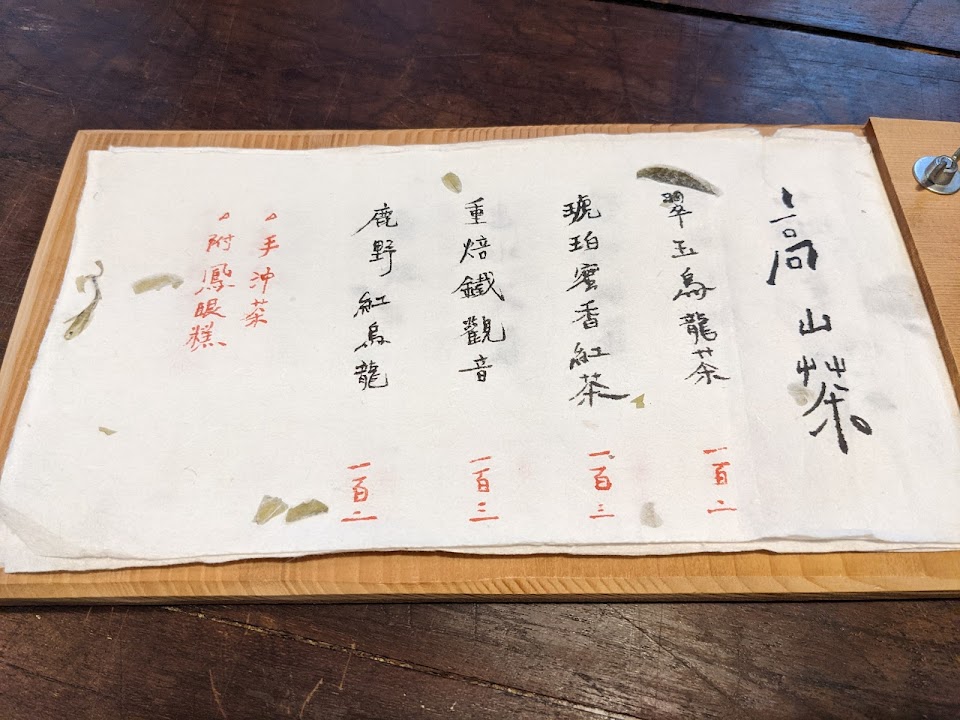 高山茶
翠玉烏龍茶
一百二
琥珀蜜香紅茶
一百三
重焙鐵觀音
一百三
鹿野紅烏龍
一百二
。手沖茶
。附鳳眼糕